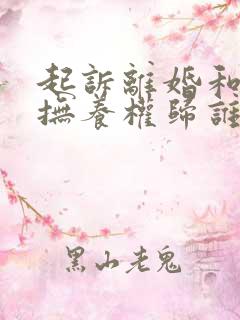 起訴離婚和
撫養權歸誰
黑山老鬼